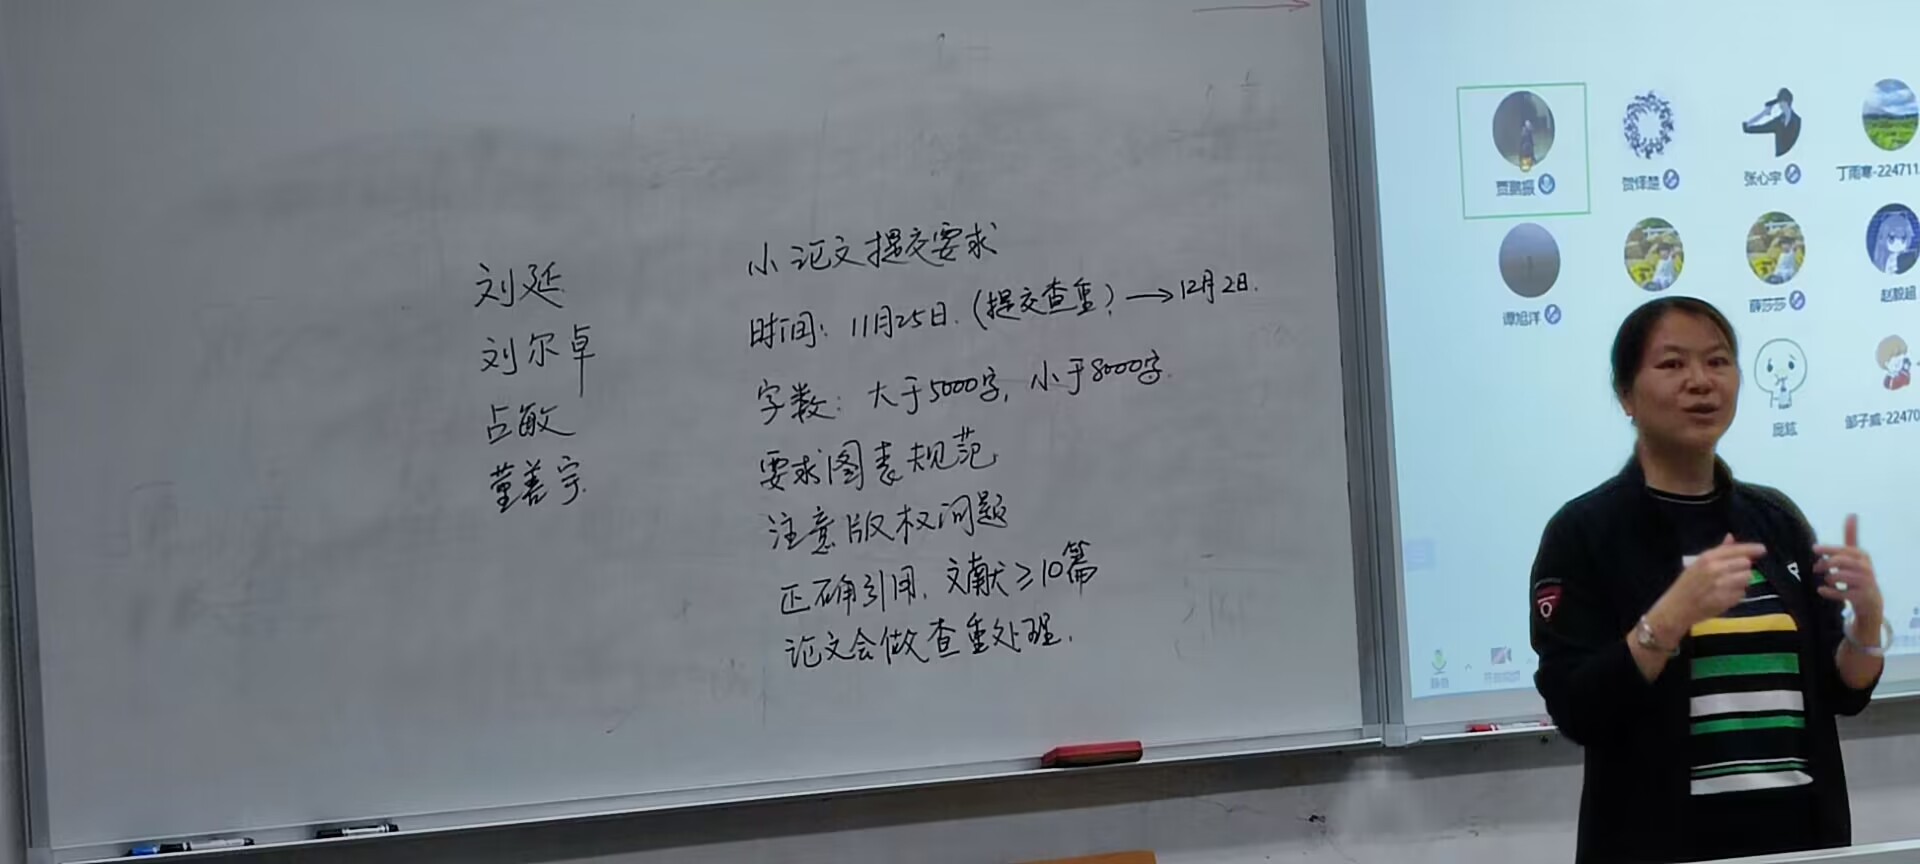 刘延
刘尔卓
占敏
董善宇
小论文提交要求
时间：11月25日.（提交查重）→12月2日.
字数：大于5000字，小于8000字.
要求图表规范
注意版权问题
正确引用，文献≥10篇
论文会做查重处理.
贾鹏振
贺怿楚
张心宇
丁雨寒-224711
谭旭洋
薛莎莎
赵毅超
庞竑
邹子威-22470